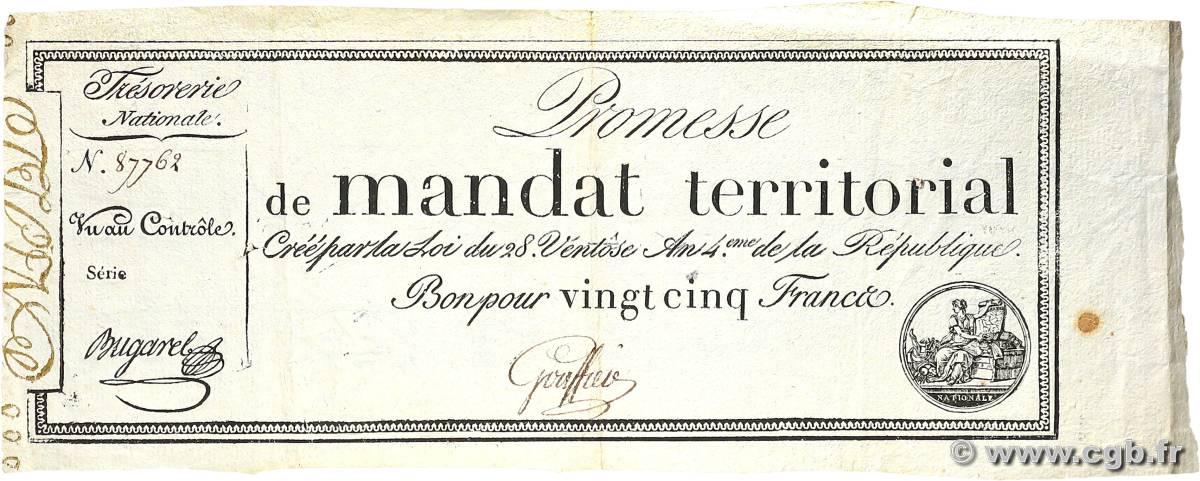 Trésorerie
Nationale.
N. 87762
Vu au Contrôle.
Série
Bugarel
Promesse
de mandat territorial
Créé par la Loi du 28. Ventôse An 4.eme de la République.
Bon pour vingt cinq Francs.
NATIONALE
© www.cgb.fr